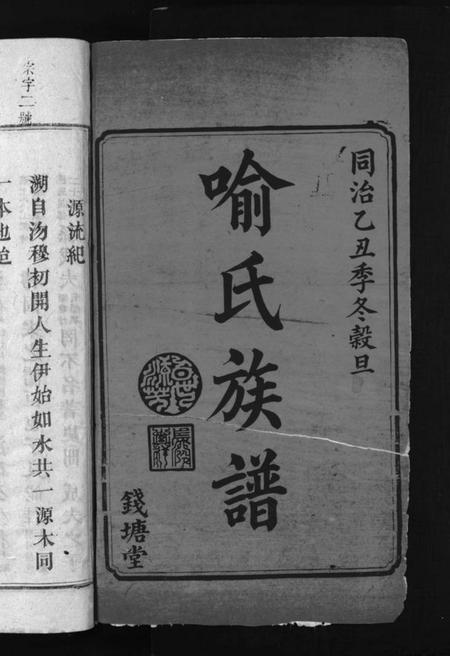 同治乙丑季冬穀旦
喻氏族譜
錢塘堂
源流紀
溯自沕穆初開人生伊始如水共一源木同
一本也追